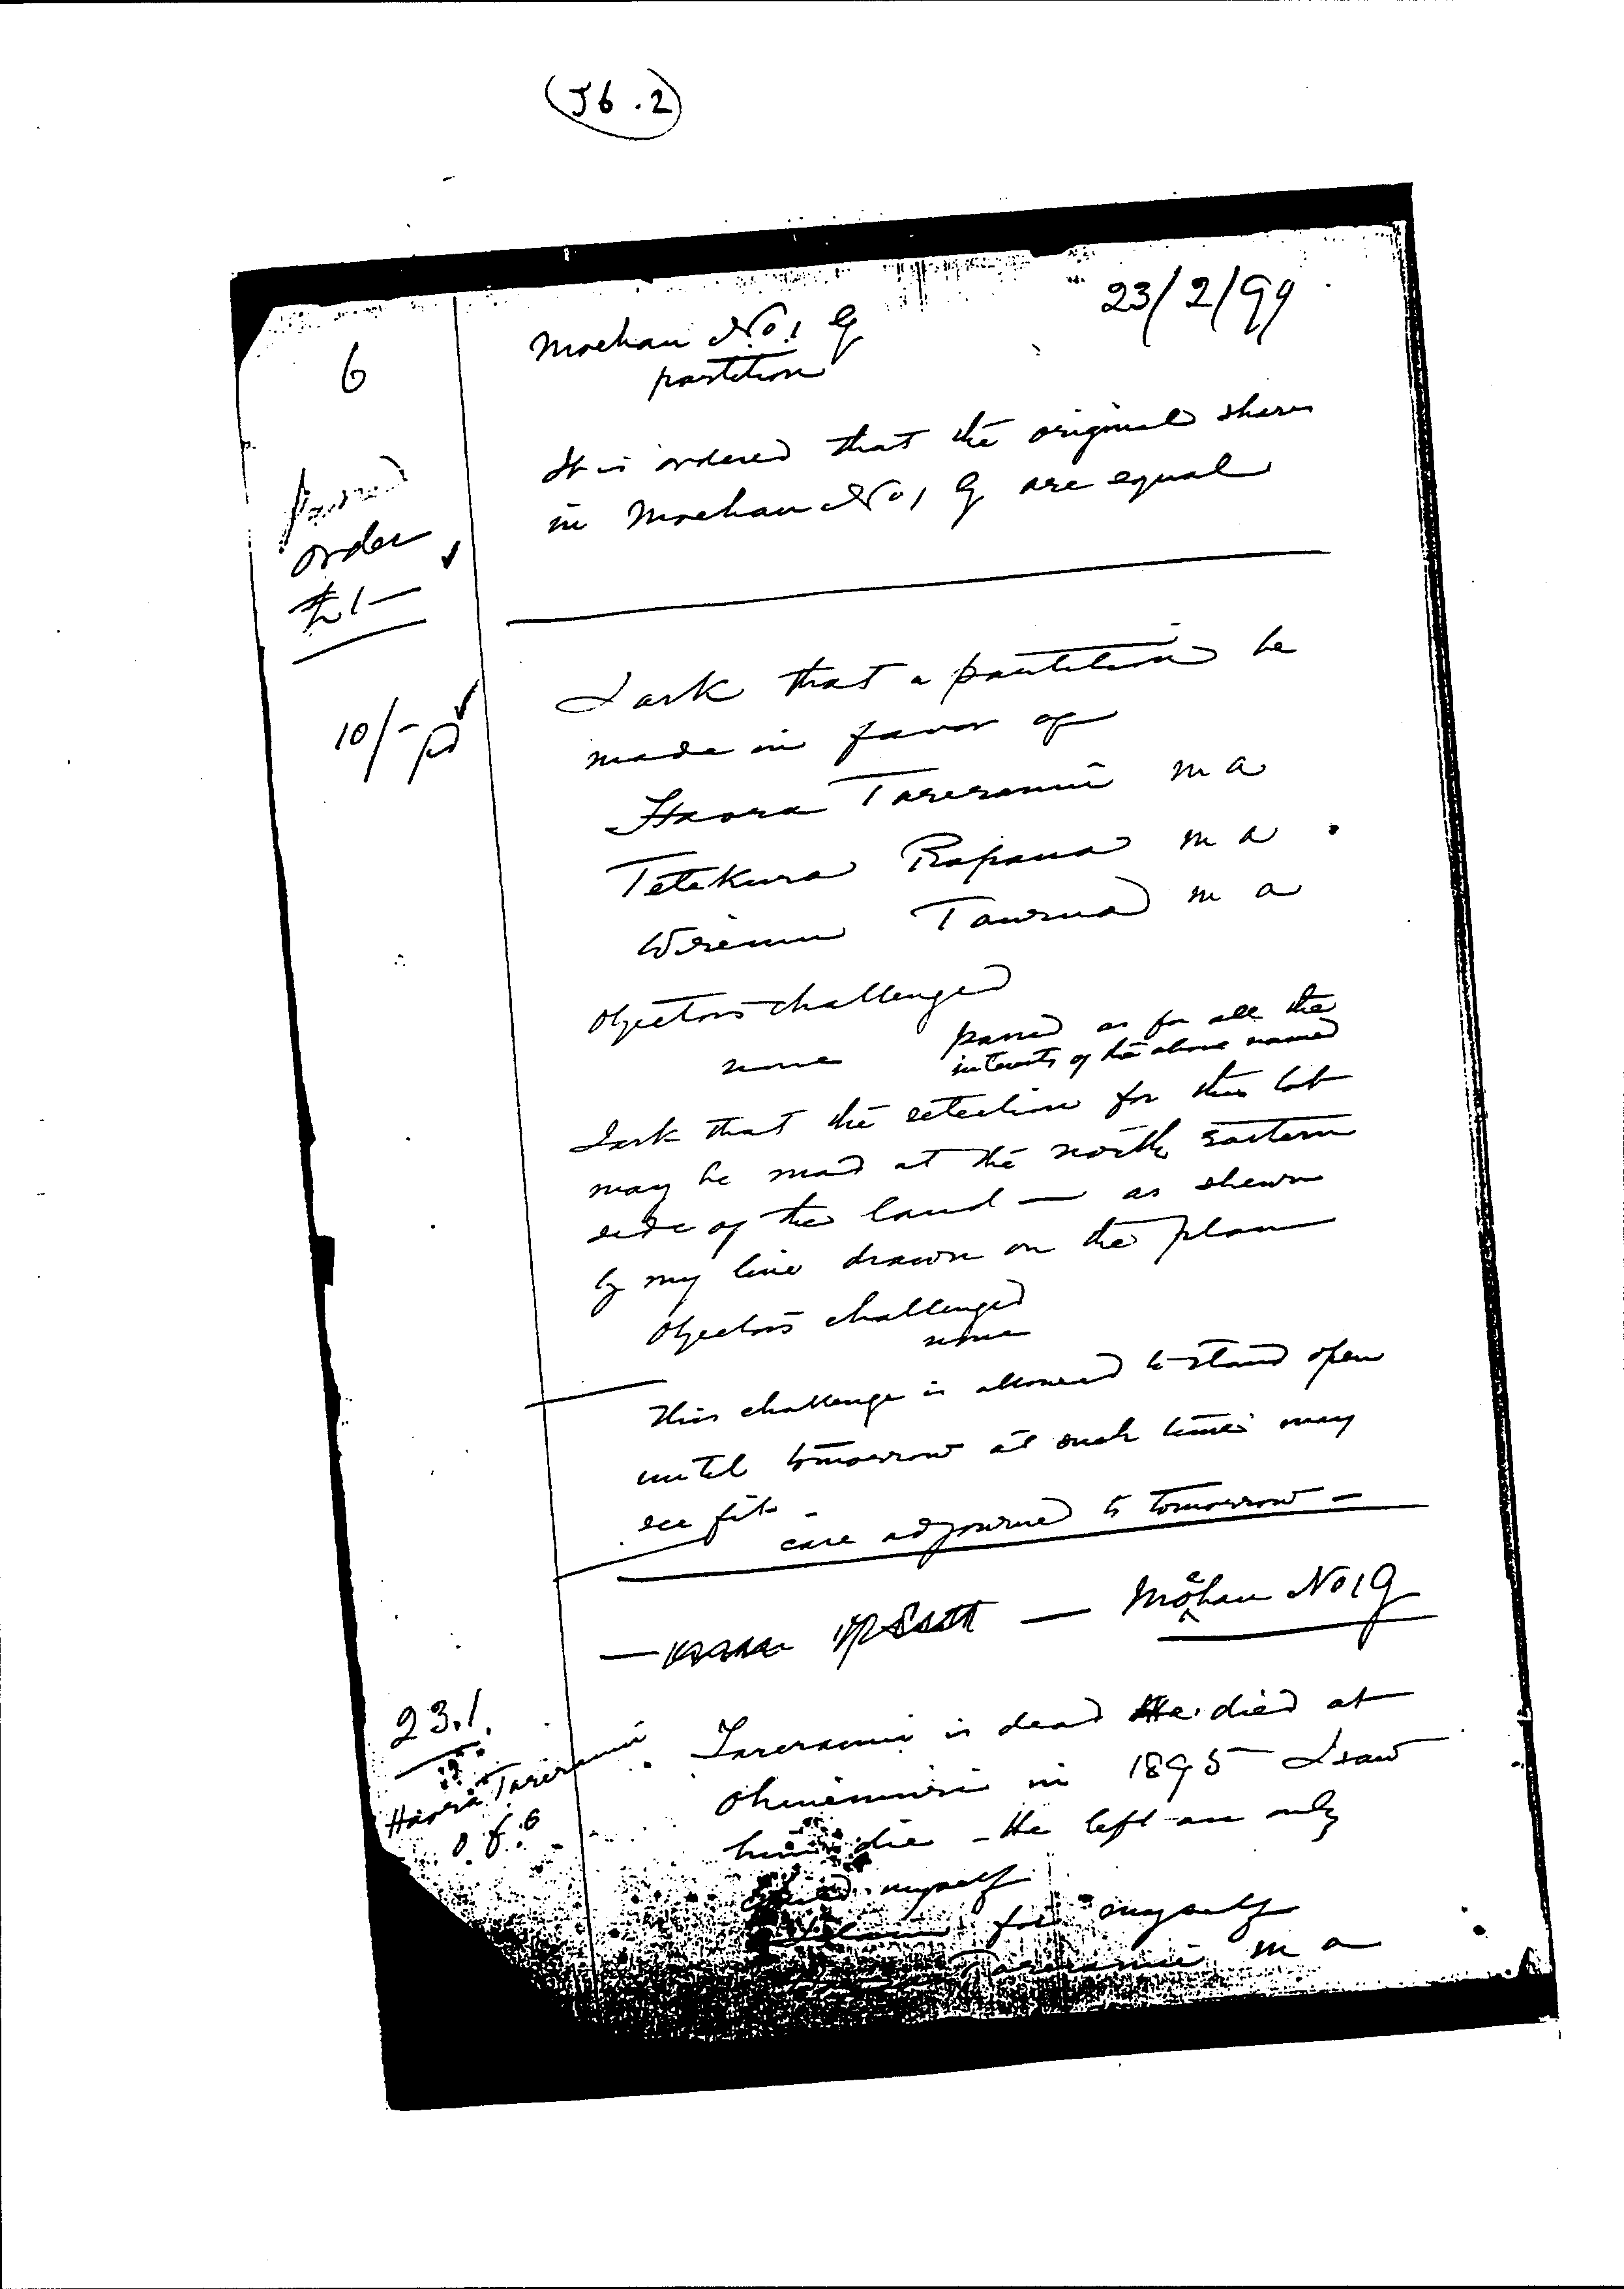 (J6.2)
23/2/99
6
Moehau No. 1 G
partition
It is ordered that the original shares
in Moehau No 1 G are equal
passed
order
£1 —
I ask that a partition be
10/- pd
made in favor of
Haora Tareranui m a
Tetekura Rapana m a
Wiremu Taurua m a
Objectors challenged
none
passed as for all the
interests of the above named
I ask that the selection for this lot
may be mad at the north eastern
side of the land — as shewn
by my line drawn on the plan
Objectors challenged
none
This challenge is allowed to stand open
until tomorrow at such time may
see fit
case adjourned to tomorrow —
— Moehau No 1 G
23.1.
Haora Tareranui
o. f. 6
Tareranui is dead He died at
Ohinemuri in 1895 I saw
him die — He left an only
child myself
I claim for myself
Tareranui m a